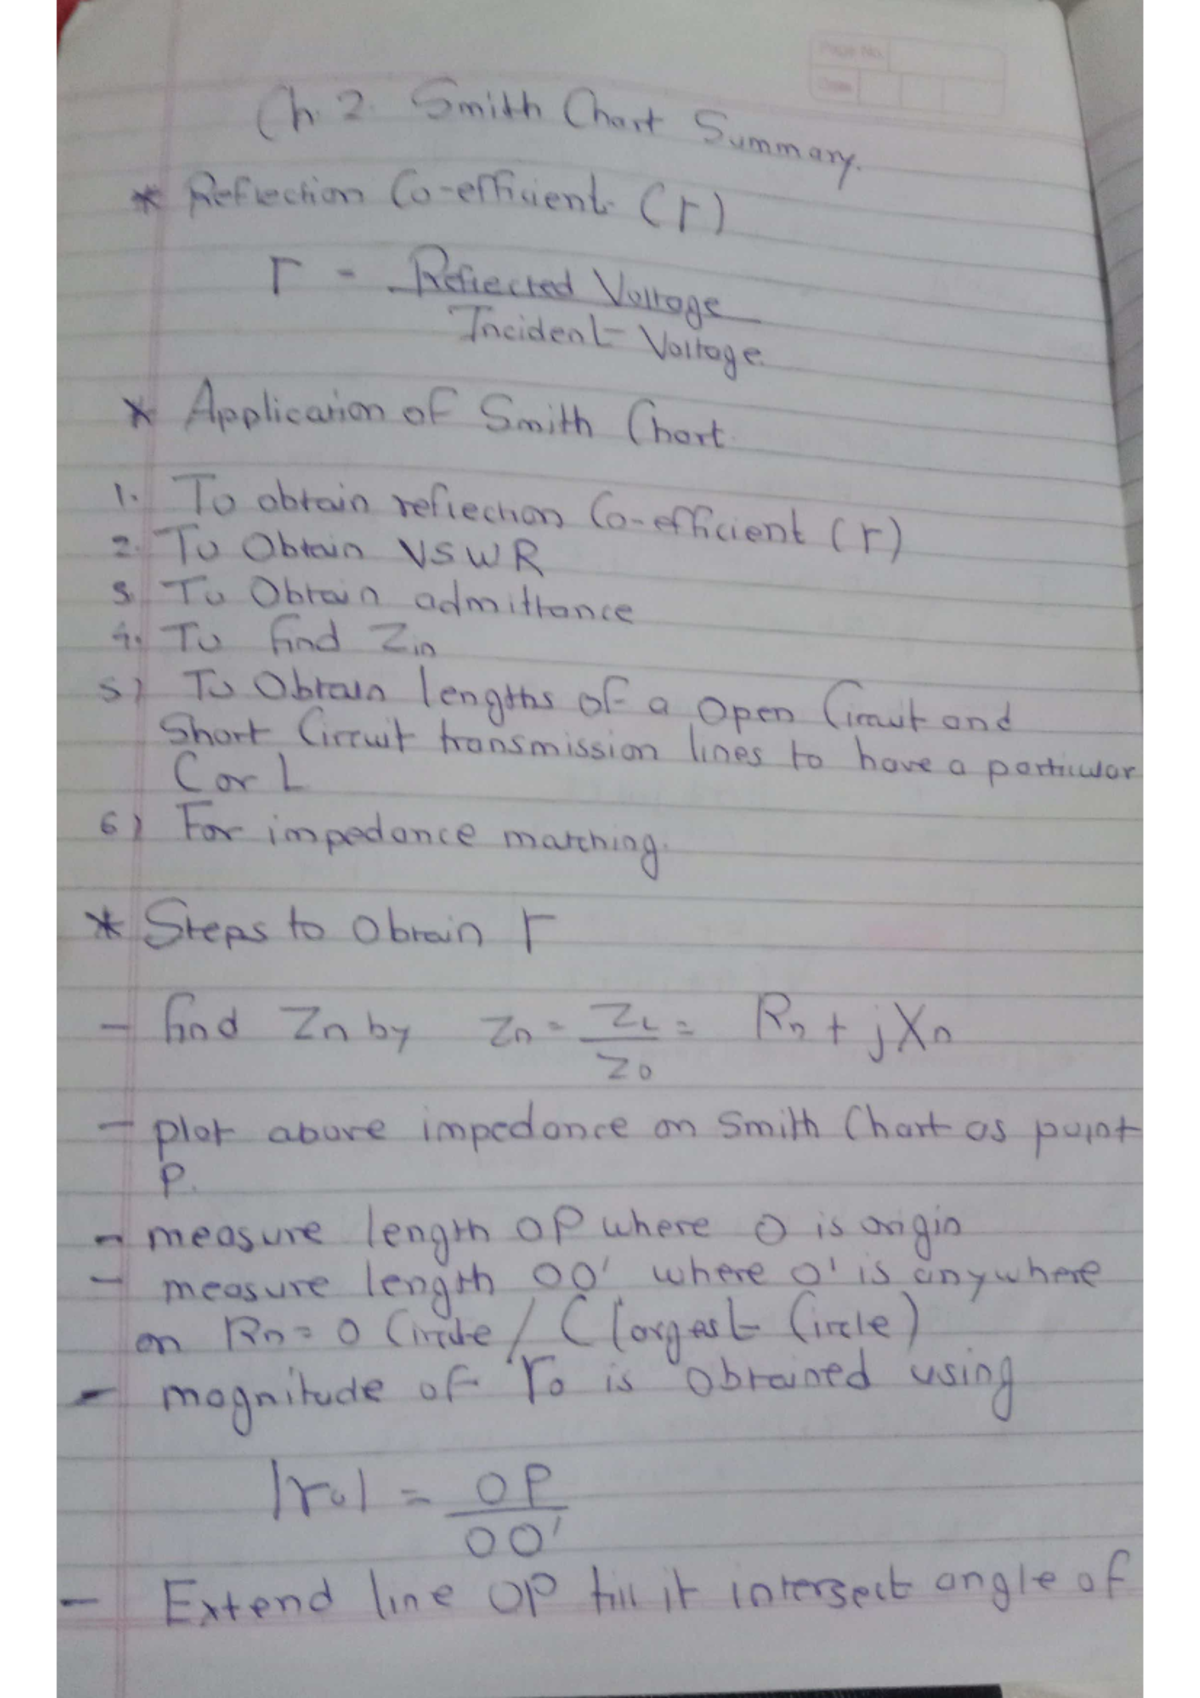 Page No.
Date
Ch. 2. Smith Chart Summary.
* Reflection Co-efficient (Γ)
Γ = Reflected Voltage
Incident Voltage.
* Application of Smith Chart.
1. To obtain reflection Co-efficient (Γ)
2. To Obtain VSWR
3. To Obtain admittance
4. To find Zin
5) To Obtain lengths of a Open Circuit and
Short Circuit transmission lines to have a particular
C or L
6) For impedance matching.
* Steps to Obtain Γ
- find Zn by Zn = ZL/Z0 = Rn + jXn
- plot above impedance on Smith Chart as point
P.
- measure length OP where O is origin
- measure length OO' where O' is anywhere
on Rn = 0 Circle / (largest Circle)
- magnitude of Γ0 is obtained using
|Γ0| = OP
OO'
- Extend line OP till it intersect angle of